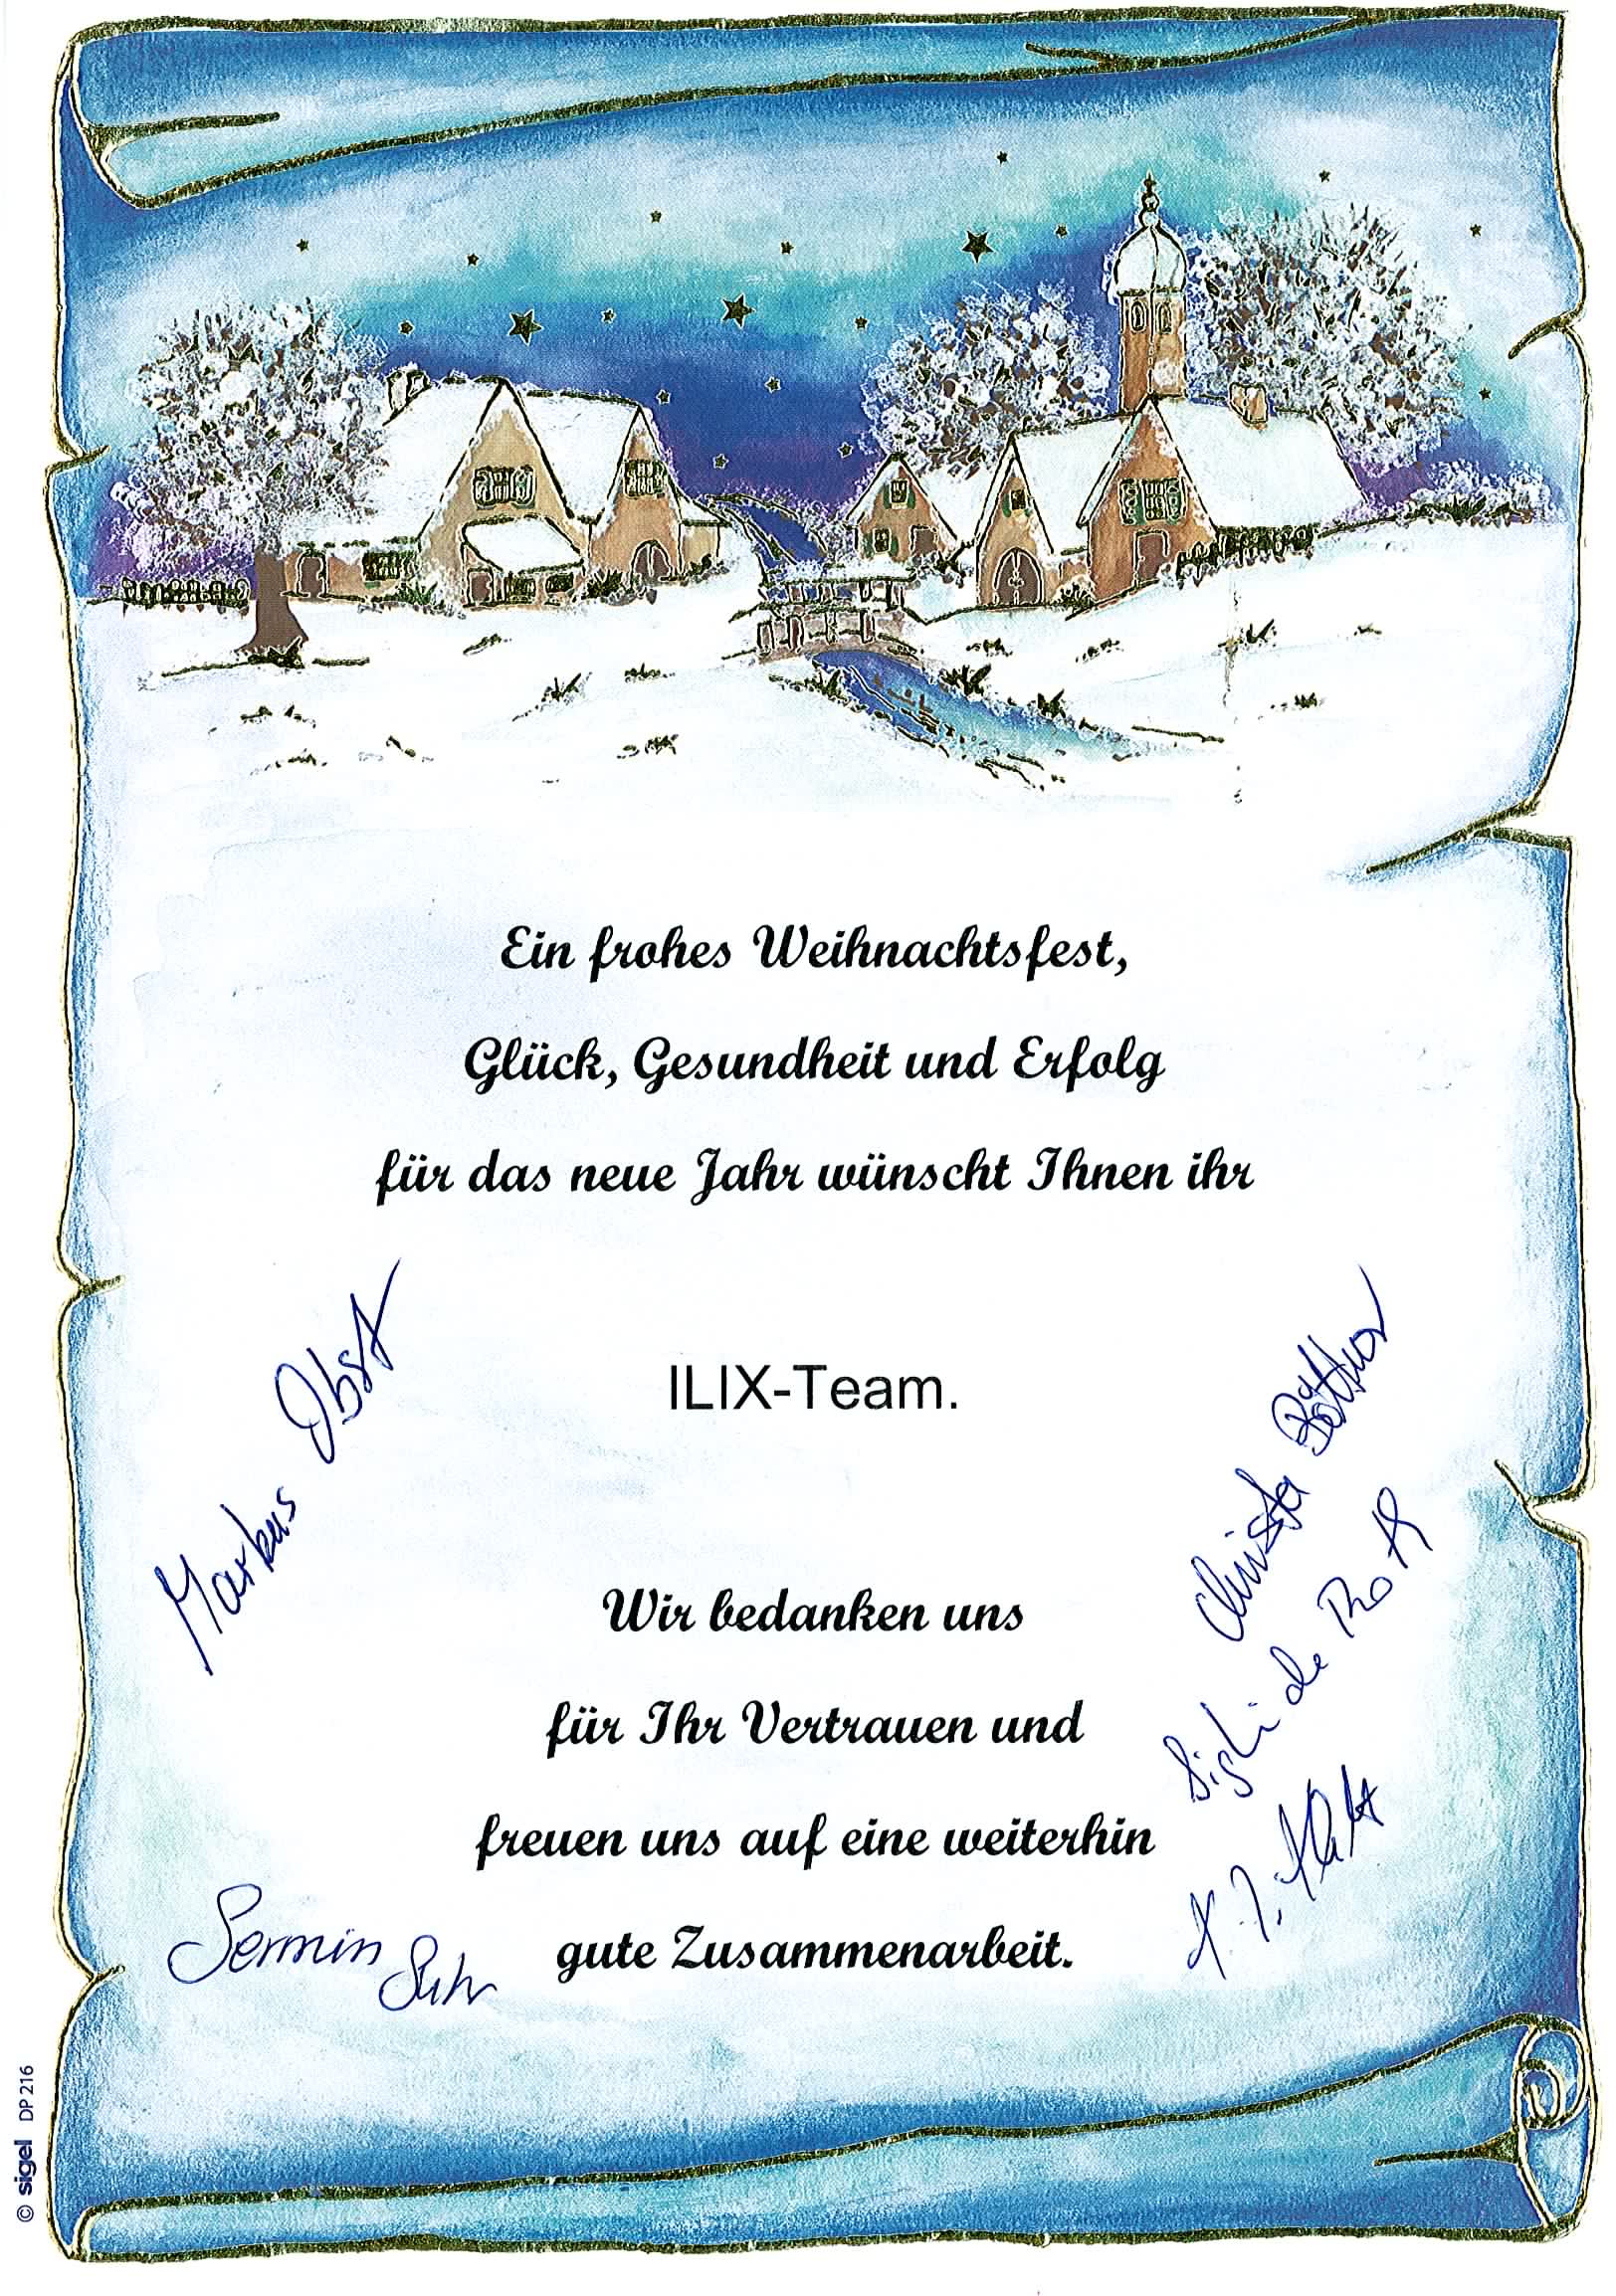 Ein frohes Weihnachtsfest,
Glück, Gesundheit und Erfolg
für das neue Jahr wünscht Ihnen ihr
Markus Obst
ILIX-Team.
Christa Böttner
Wir bedanken uns
für Ihr Vertrauen und
freuen uns auf eine weiterhin
gute Zusammenarbeit.
Sermin Suhr
© sigel DP 216